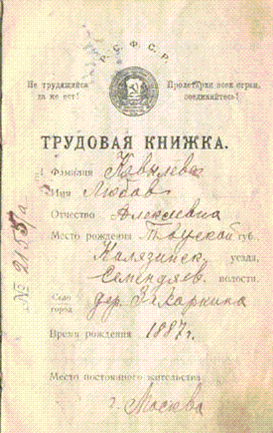 Р. С. Ф. С. Р.
Не трудящийся Пролетарии всех стран,
да не ест! соединяйтесь!
ТРУДОВАЯ КНИЖКА.
Фамилия
Имя Любовь
Отчество Алексеевна
Место рождения Тверской губ.,
Калязинск. уезда,
Семендяев. волости.
Село
город дер. Захаркина
Время рождения 1887 г.
Место постоянного жительства
г. Москва
№ 21557а